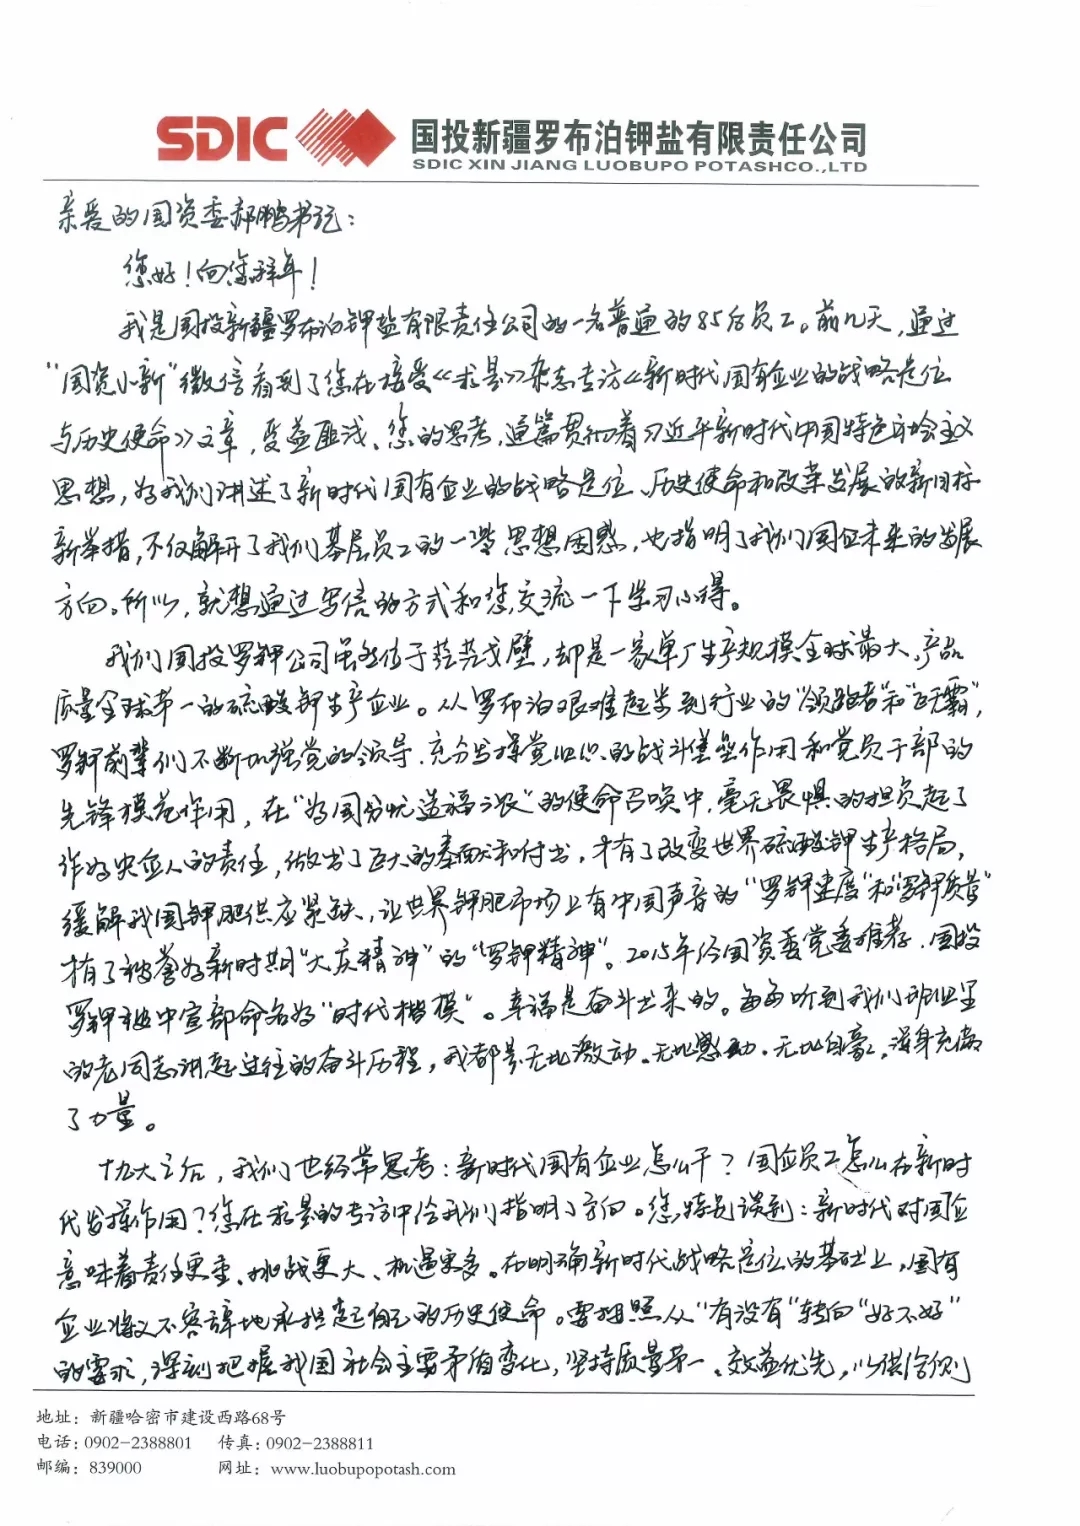 SDIC 国投新疆罗布泊钾盐有限责任公司
SDIC XIN JIANG LUOBUPO POTASHCO.,LTD
亲爱的国资委郝鹏书记：
您好！向您拜年！
我是国投新疆罗布泊钾盐有限责任公司的一名普通的85后员工。前几天，通过
“国资小新”微信看到了您在接受《求是》杂志专访《新时代国有企业的战略定位
与历史使命》文章，受益匪浅、您的思考，通篇贯彻着习近平新时代中国特色社会主义
思想，为我们讲述了新时代国有企业的战略定位、历史使命和改革发展的新目标
新举措，不仅解开了我们基层员工的一些思想困惑，也指明了我们国企未来的发展
方向。所以，就想通过写信的方式和您交流一下学习心得。
我们国投罗钾公司虽然位于茫茫戈壁，却是一家单厂生产规模全球最大、产品
质量全球第一的硫酸钾生产企业。从罗布泊艰难起步到行业的“领跑者”和“巨无霸”，
罗钾前辈们不断加强党的领导、充分发挥党组织的战斗堡垒作用和党员干部的
先锋模范作用，在“为国分忧造福三农”的使命召唤中，毫无畏惧的担负起了
作为央企人的责任，做出了巨大的奉献和付出，才有了改变世界硫酸钾生产格局，
缓解我国钾肥供应紧缺，让世界钾肥市场上有中国声音的“罗钾速度”和“罗钾质量”
才有了被誉为新时期“大庆精神”的“罗钾精神”。2015年经国资委党委推荐，国投
罗钾被中宣部命名为“时代楷模”。幸福是奋斗出来的。每每听到我们班组里
的老同志讲起过往的奋斗历程，我都是无比激动、无比感动、无比自豪，浑身充满
了力量。
十九大之后，我们也经常思考：新时代国有企业怎么干？国企员工怎么在新时
代发挥作用？您在求是的专访中给我们指明了方向。您特别谈到：新时代对国企
意味着责任更重、挑战更大、机遇更多。在明确新时代战略定位的基础上，国有
企业将义不容辞地承担起自己的历史使命。要按照从“有没有”转向“好不好”
的要求，深刻把握我国社会主要矛盾变化，坚持质量第一、效益优先，以供给侧
地址：新疆哈密市建设西路68号
电话：0902-2388801 传真：0902-2388811
邮编：839000 网址：www.luobupopotash.com